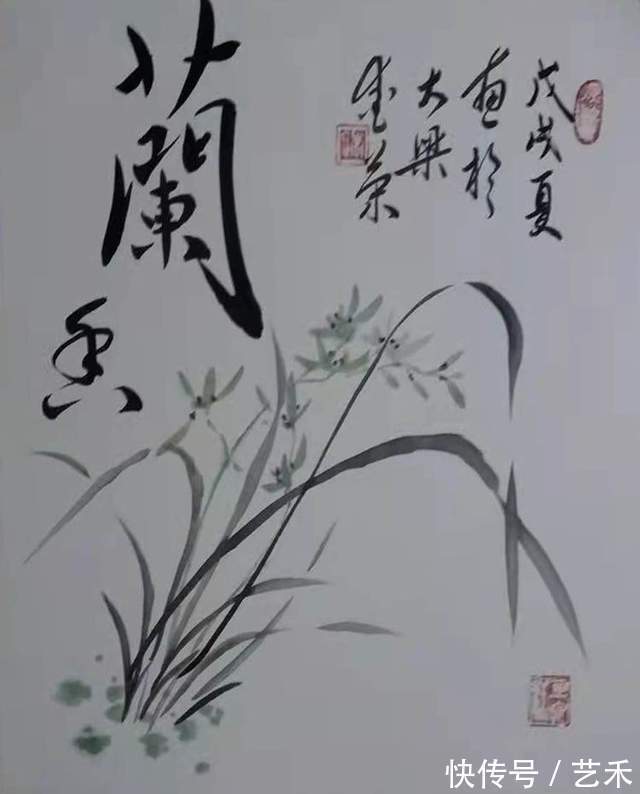 蘭
香
戊戌夏
画於
大梁
快传号 / 艺禾